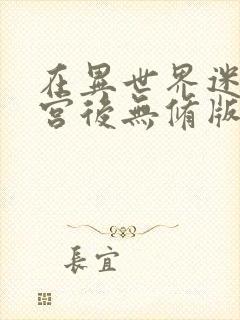 在異世界迷
宮後無脩版
長宜